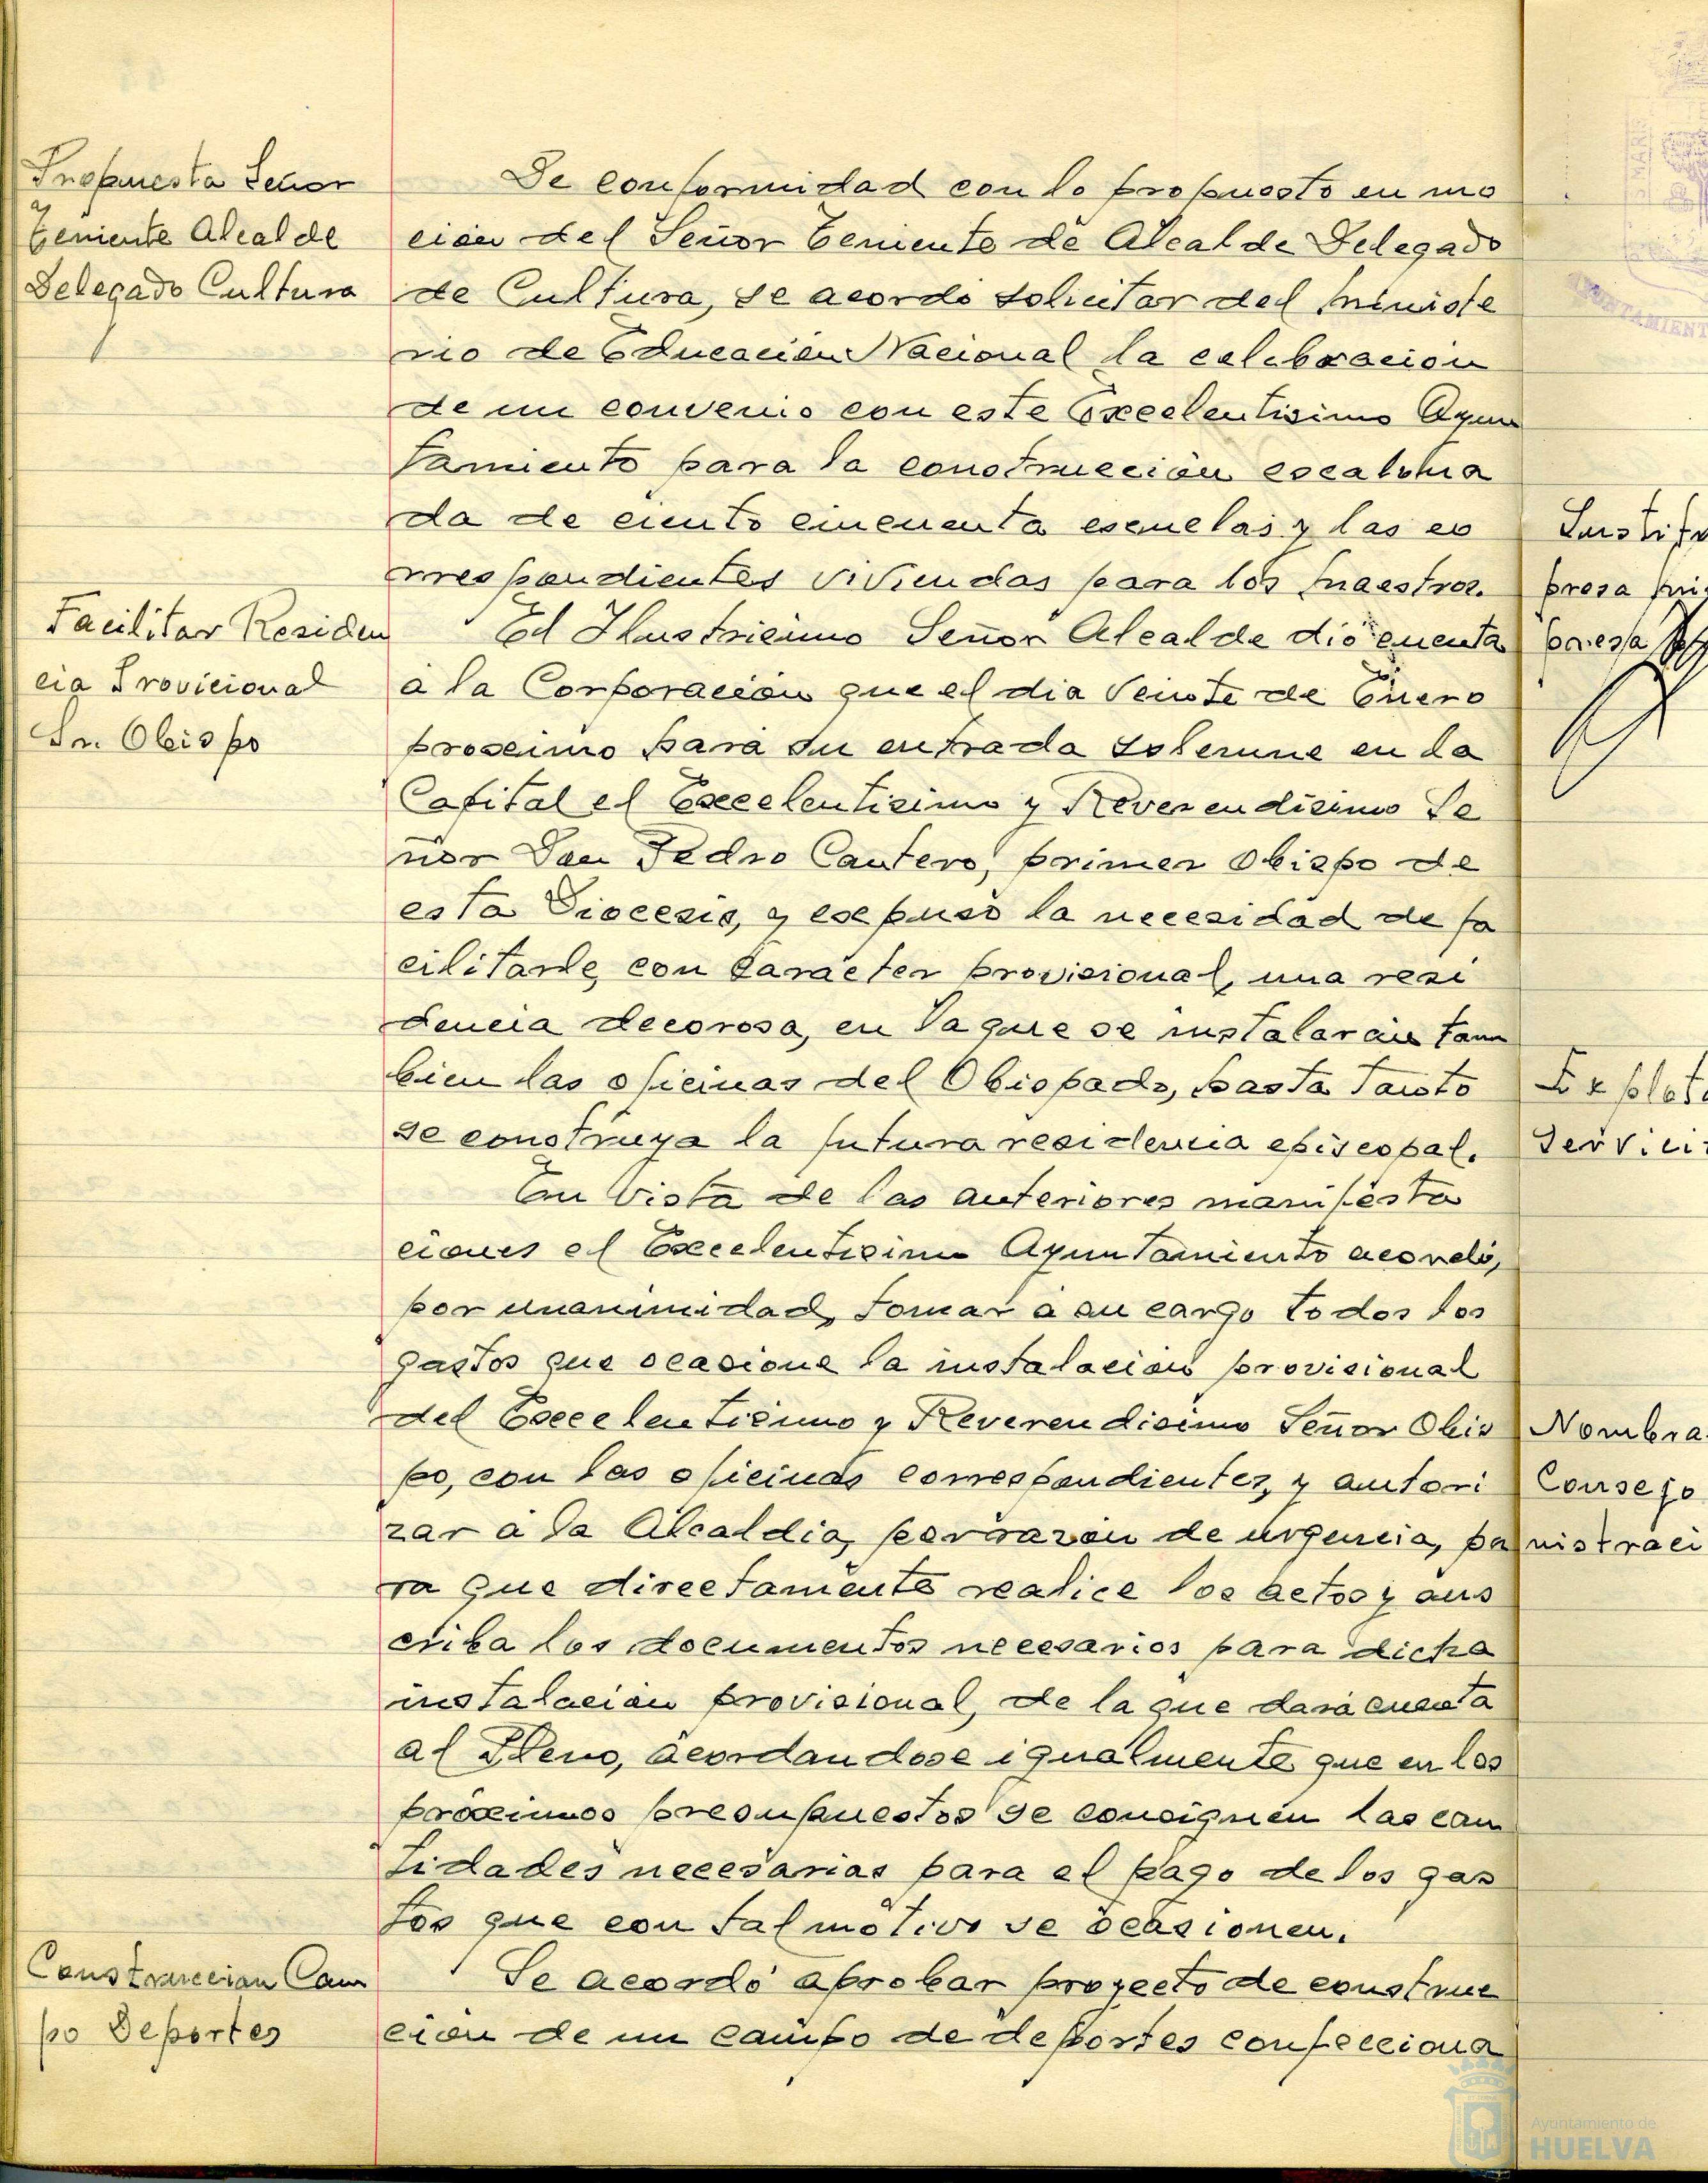 Propuesta Señor
Teniente Alcalde
Delegado Cultura
De conformidad con lo propuesto en mo
ción del Señor Teniente de Alcalde Delegado
de Cultura, se acordó solicitar del Ministe
rio de Educación Nacional la celebración
de un convenio con este Excelentisimo Ayun
tamiento para la construcción escalona
da de ciento cincuenta escuelas y las co
rrespondientes viviendas para los maestros.
Facilitar Residen
cia Provicional
Sr. Obispo
El Ilustrisimo Señor Alcalde dió cuenta
a la Corporación que el dia veinte de Enero
proximo hará su entrada solemne en la
Capital el Excelentisimo y Reverendisimo Se
ñor Don Pedro Cantero, primer Obispo de
esta Diocesis, y expuso la necesidad de fa
cilitarle, con caracter provisional, una resi
dencia decorosa, en la que se instalarán tam
bien las oficinas del Obispado, hasta tanto
se construya la futura residencia episcopal.
En vista de las anteriores manifesta
ciones el Excelentisimo Ayuntamiento acordó,
por unanimidad, tomar a su cargo todos los
gastos que ocasione la instalación provisional
del Excelentisimo y Reverendisimo Señor Obis
po, con las oficinas correspondientes, y autori
zar a la Alcaldia, por razón de urgencia, pa
ra que directamente realice los actos y sus
criba los documentos necesarios para dicha
instalación provisional, de la que dará cuenta
al Pleno, acordandose igualmente que en los
próximos presupuestos se consignen las can
tidades necesarias para el pago de los gas
tos que con tal motivo se ocasionen.
Construccion Cam
po Deportes
Se acordó aprobar proyecto de construc
ción de un campo de deportes confecciona
presa
Servici
Nombra
Consejo
nistraci
AYUNTAMIENT
Ayuntamiento de
HUELVA